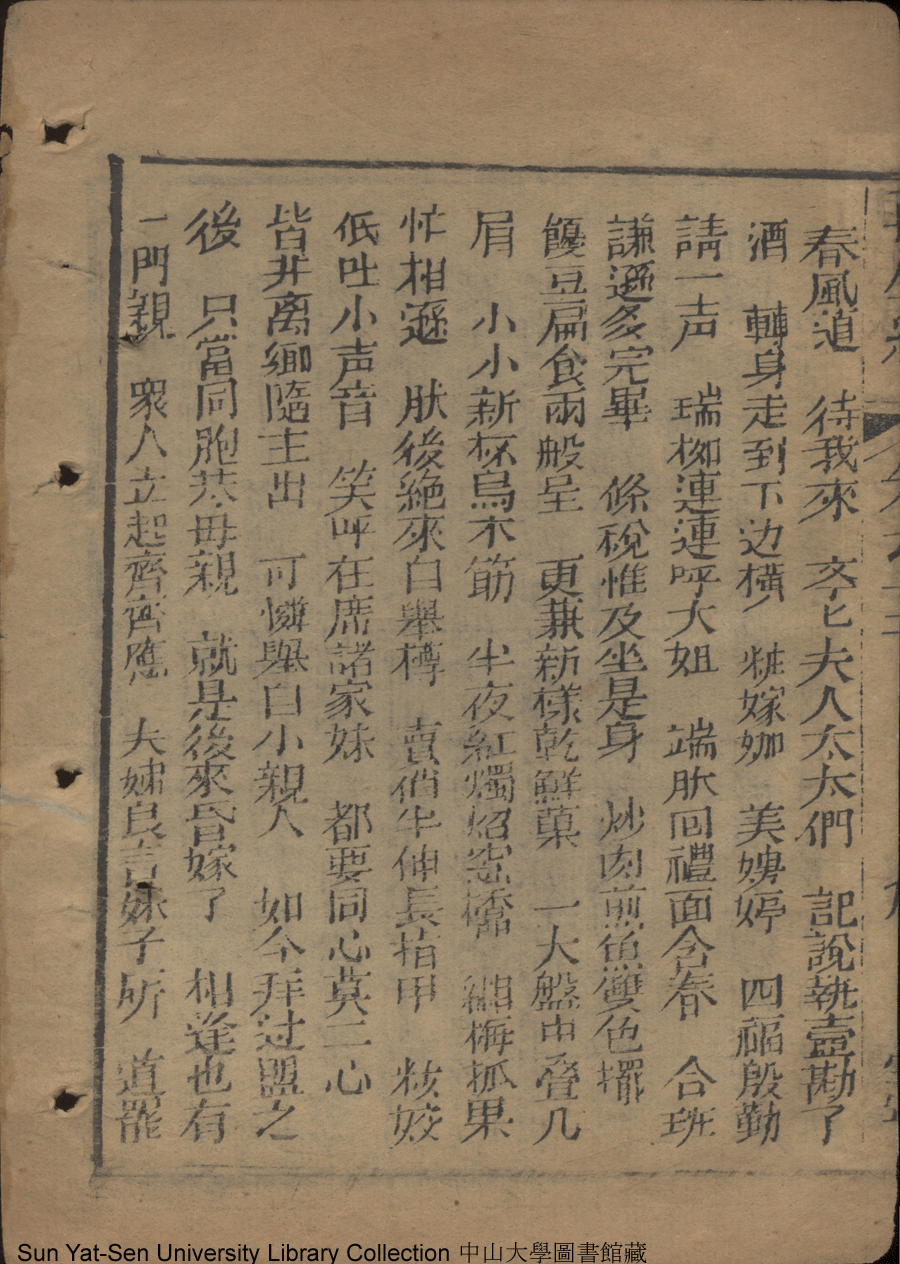 春風道　待我來　交乜夫人太太們　記說執壺斟了
酒　轉身走到下边橫　粧嫁妯　美娉婷　四福殷勤
請一声　瑞柳連連呼大姐　端肰回禮面含春　合班
謙遜多完畢　條稅惟及坐是身　炒肉煎魚雙色擺
饅豆扁食兩般呈　更兼新樣乾鮮菓　一大盤中叠几
眉　小小新杯烏木筯　半夜紅燭焰窓橋　細梅孤果
忙相遜　肰後絶來自舉樽　賣俏半伸長指甲　姣
低吐小声音　笑呼在席諸家妹　都要同心莫二心
皆井离鄉隨主出　可憐舉目小親人　如今拜过盟之
後　只當同胞共毋親　就是後來昏嫁了　相逢也有
一門親　衆人立起齊齊應　夫婦良言妹子所　道罷
Sun Yat-Sen University Library Collection 中山大學圖書館藏